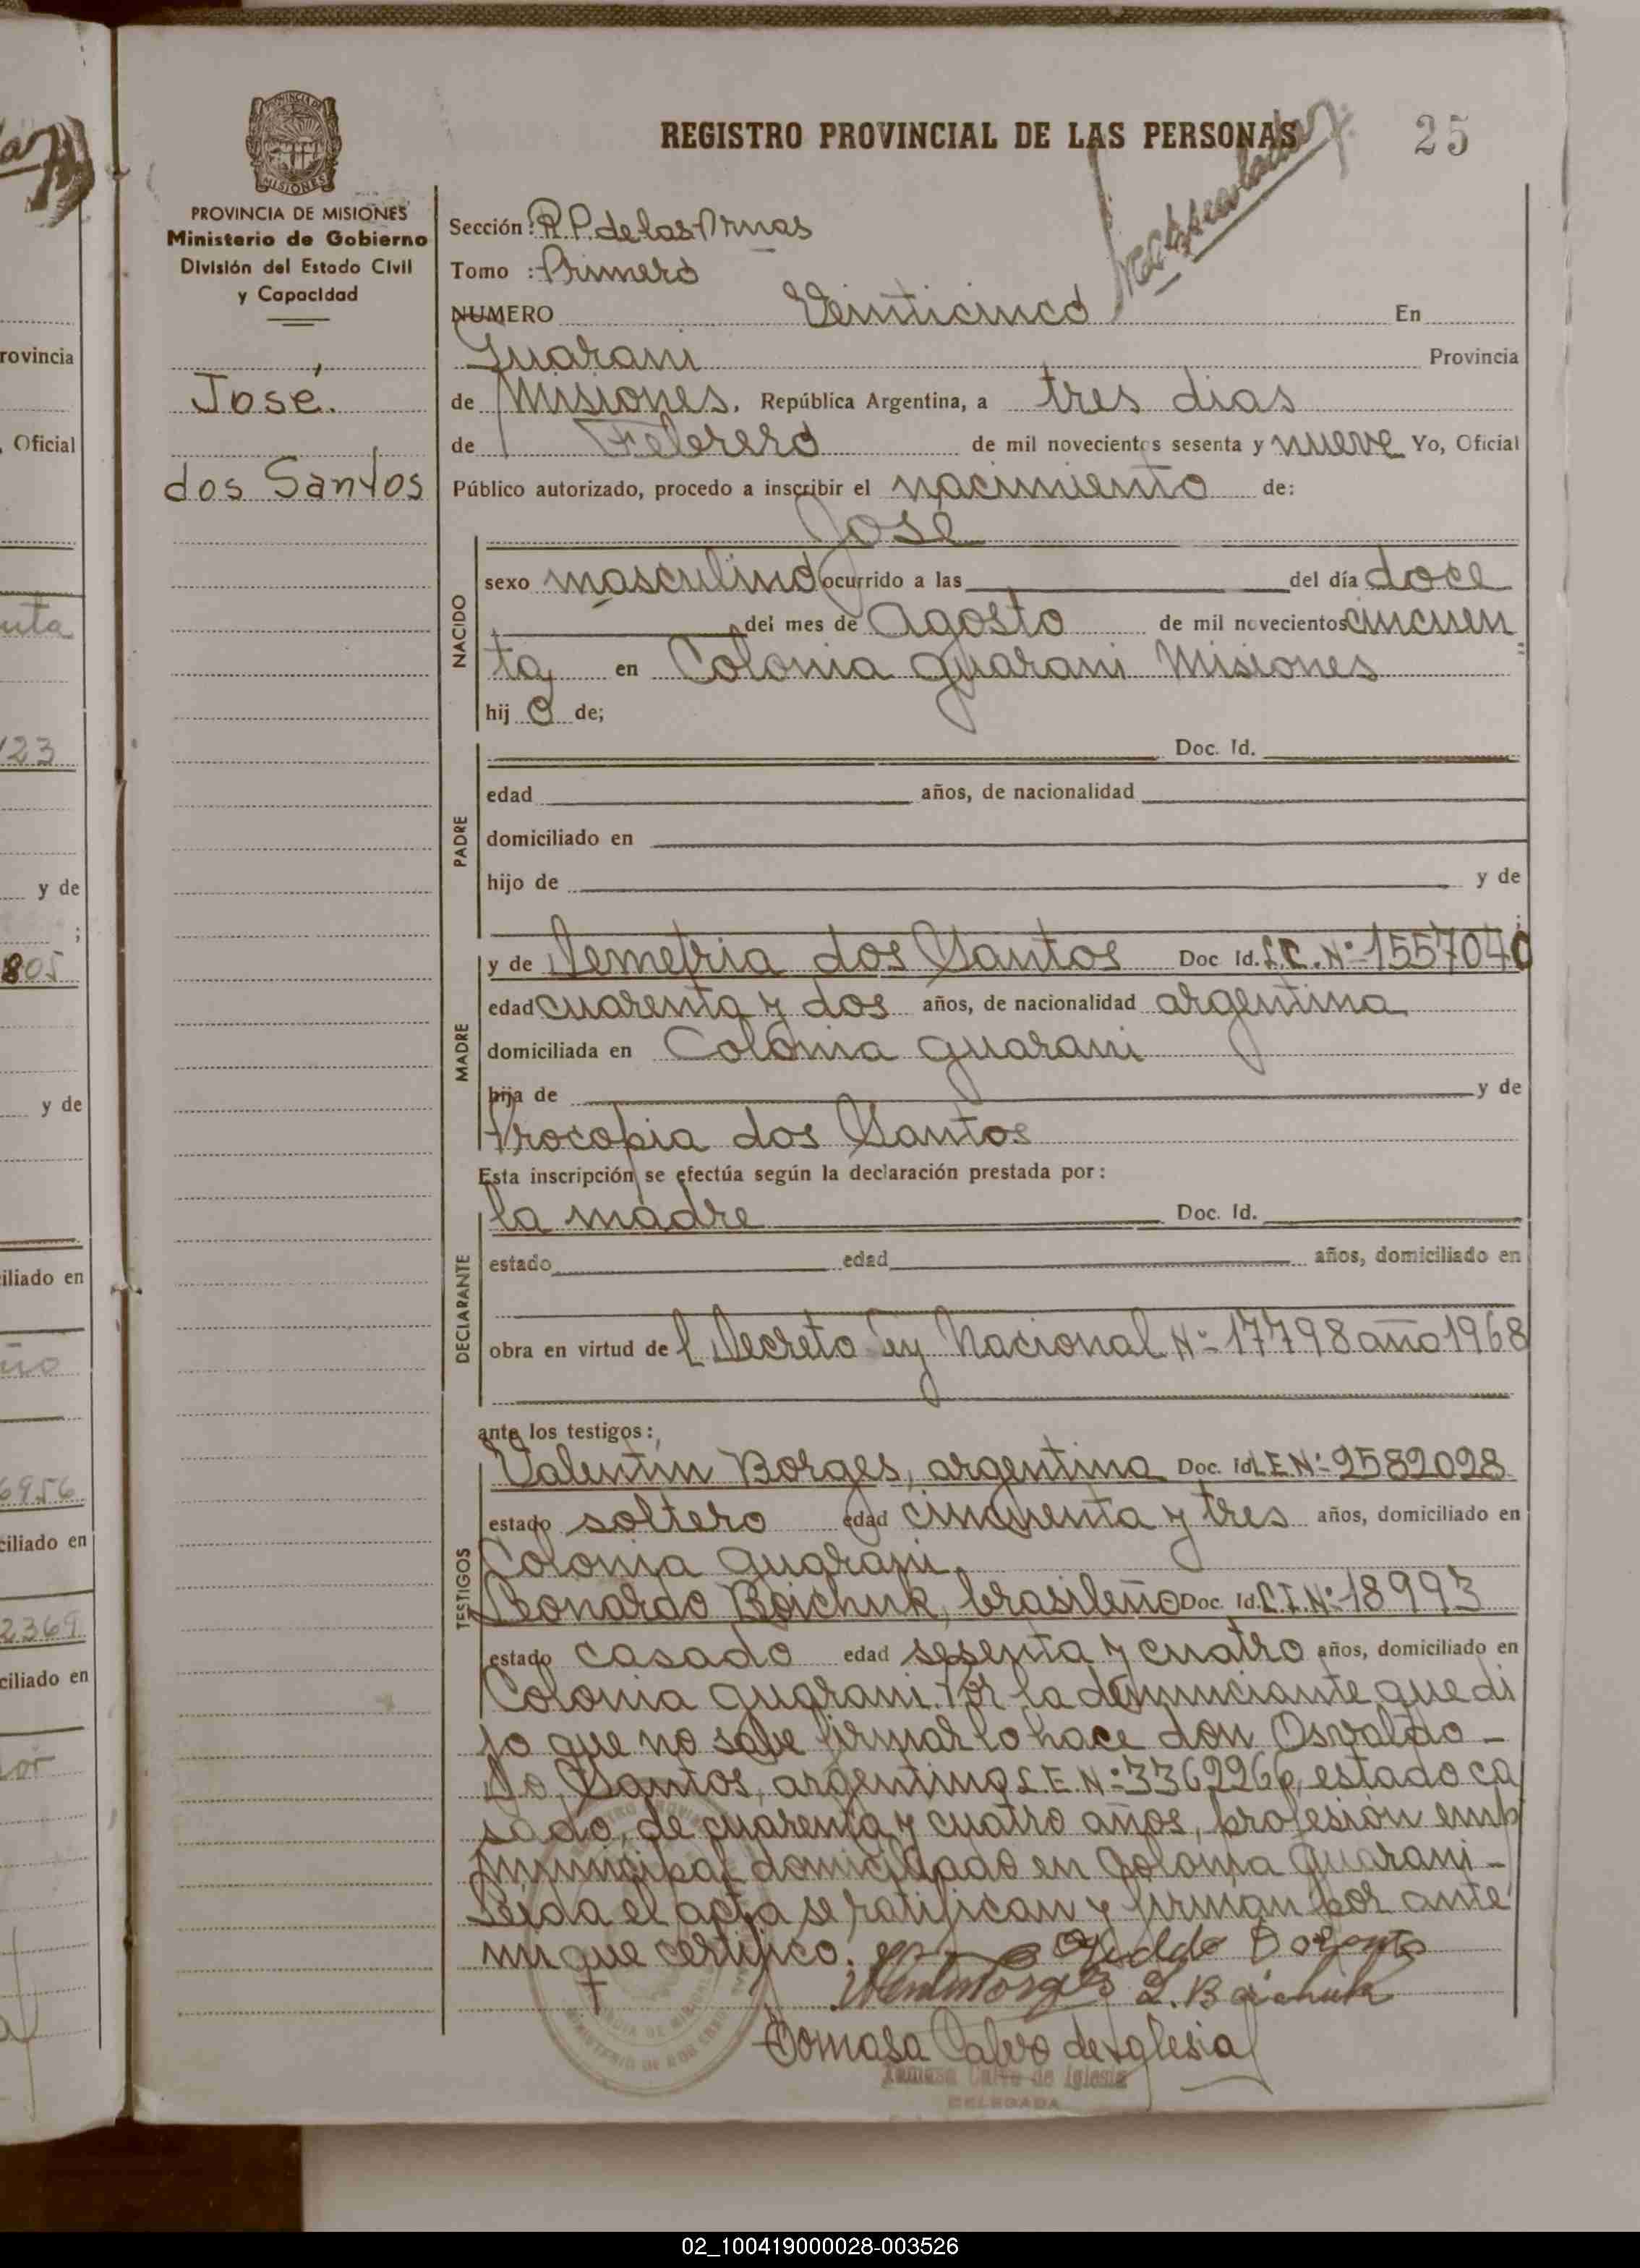 REGISTRO PROVINCIAL DE LAS PERSONAS
25
PROVINCIA DE MISIONES
PROVINCIA DE MISIONES
Ministerio de Gobierno
División del Estado Civil
y Capacidad
José
dos Santos
Sección: R.P. de las
Tomo : Primero
NUMERO Veinticinco En
Guarani Provincia
de Misiones, República Argentina, a tres dias
de Febrero de mil novecientos sesenta y nueve Yo, Oficial
Público autorizado, procedo a inscribir el nacimiento de:
José
NACIDO
sexo masculino ocurrido a las del día doce
del mes de Agosto de mil novecientos cincuen
ta en Colonia guarani Misiones
hij o de;
PADRE
Doc. Id.
edad años, de nacionalidad
domiciliado en
hijo de y de
MADRE
y de Demetria dos Santos Doc Id. L.C. Nº 1557040
edad cuarenta y dos años, de nacionalidad argentina
domiciliada en Colonia guarani
hija de y de
Procopia dos Santos
Esta inscripción se efectúa según la declaración prestada por:
DECLARANTE
la madre Doc. Id.
estado edad años, domiciliado en
obra en virtud de l Decreto Ley Nacional Nº 17798 año 1968
ante los testigos:
TESTIGOS
Valentin Borges, argentino Doc. Id L.E Nº 2582028
estado soltero edad cincuenta y tres años, domiciliado en
Colonia guarani
Leonardo Boichuk, brasileño Doc. Id. C.I. Nº 18993
estado casado edad sesenta y cuatro años, domiciliado en
Colonia guarani. Por la denunciante que di
jo que no sabe firmar lo hace don Osvaldo -
Do Santos, argentino L.E Nº 3362266, estado ca
sado, de cuarenta y cuatro años, profesión emp
municipal domiciliado en Colonia Guarani -
Leida el acta se ratifican y firman por ante
mi que certifico.
L. Boichuk
Tomasa Calvo de Iglesia
Tomasa Calvo de Iglesia
DELEGADA
rovincia
Oficial
123
y de
805
y de
iliado en
6956
ciliado en
2369
ciliado en
02_100419000028-003526